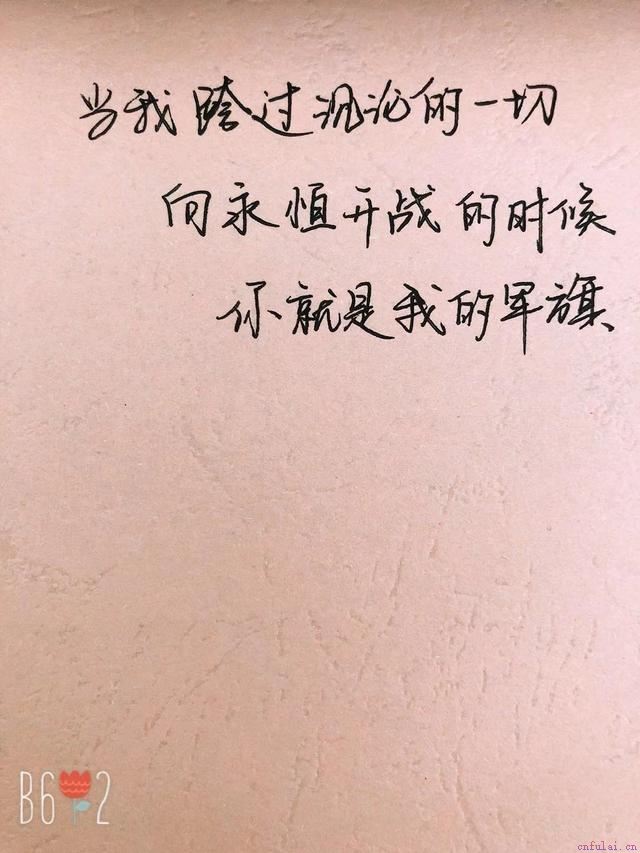 当我跨过沉沦的一切
向永恒开战的时候
你就是我的军旗
B6 2
cnfulai.cn